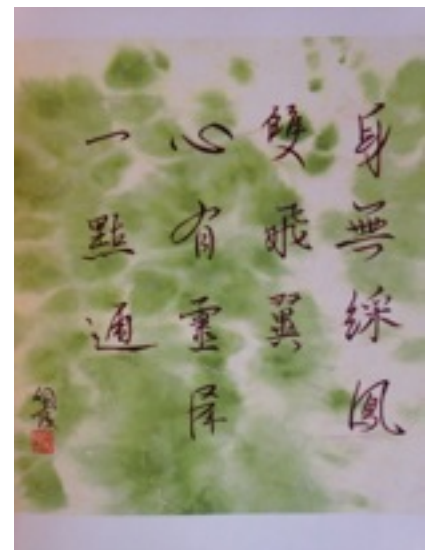 身無綵鳳
雙飛翼
心有靈犀
一點通